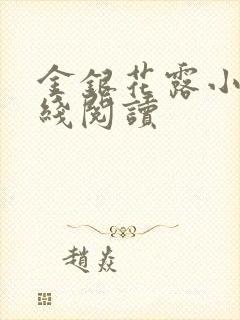 金銀花露小
綫閱讀
趙焱